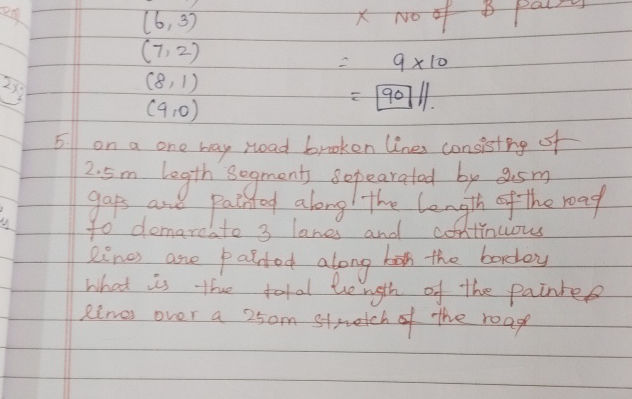 (6, 3) x No of B
(7, 2) = 9 x 10
(8, 1) = 90 //.
(9, 0)
5. on a one way road broken lines consisting of
2.5m legth segments sepearated by 2.5m
gaps are painted along the length of the road
to demarcate 3 lanes and continuous
lines are painted along the border
what is the total length of the painted
lines over a 250m stretch of the road